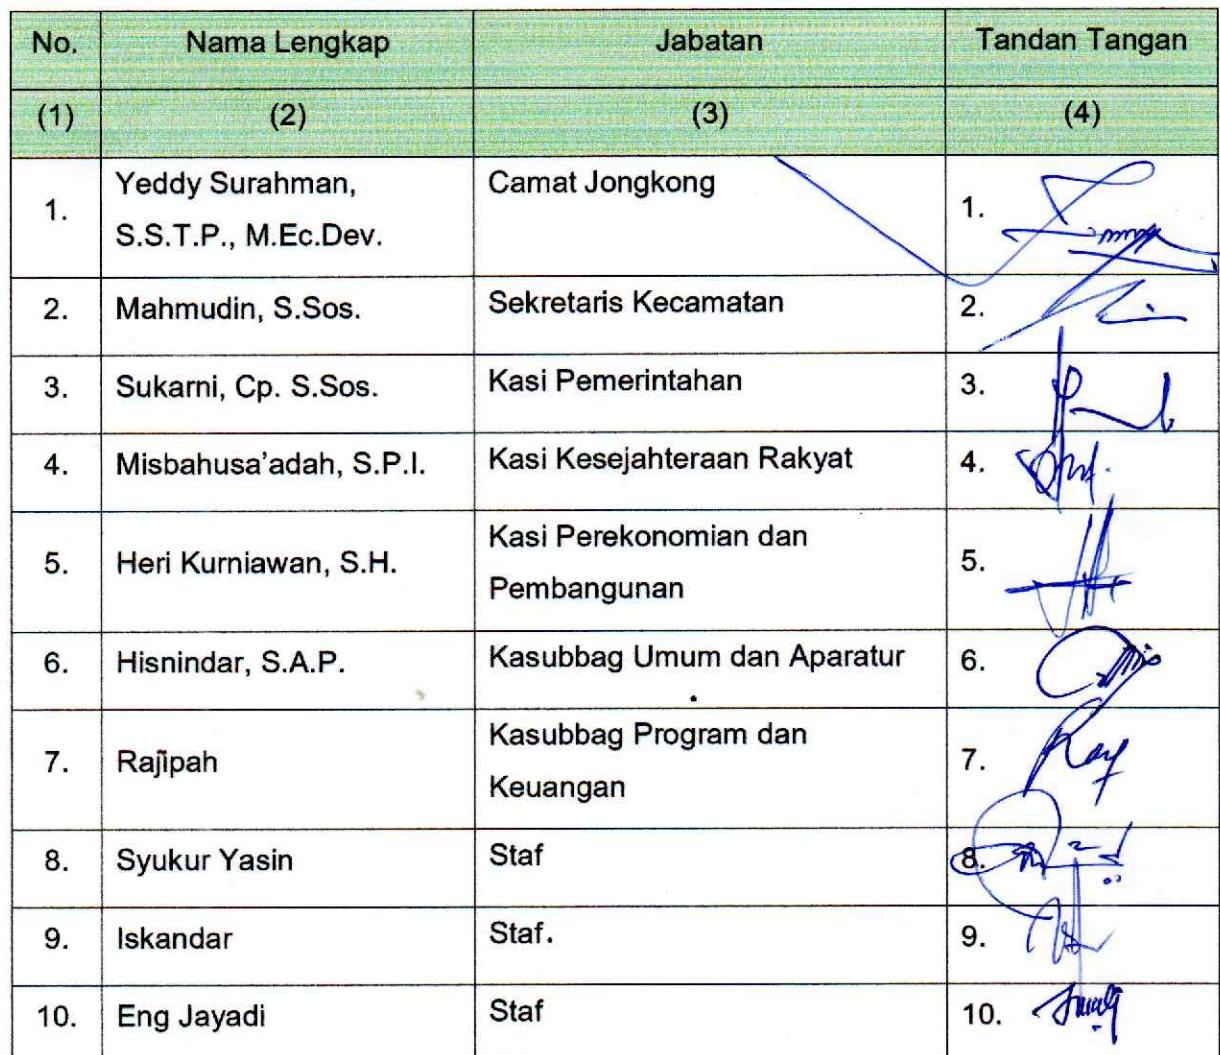 No. Nama Lengkap Jabatan Tandan Tangan
(1) (2) (3) (4)
1. Yeddy Surahman, S.S.T.P., M.Ec.Dev. Camat Jongkong 1.
2. Mahmudin, S.Sos. Sekretaris Kecamatan 2.
3. Sukarni, Cp. S.Sos. Kasi Pemerintahan 3.
4. Misbahusa'adah, S.P.I. Kasi Kesejahteraan Rakyat 4.
5. Heri Kurniawan, S.H. Kasi Perekonomian dan Pembangunan 5.
6. Hisnindar, S.A.P. Kasubbag Umum dan Aparatur 6.
7. Rajipah Kasubbag Program dan Keuangan 7.
8. Syukur Yasin Staf 8.
9. Iskandar Staf. 9.
10. Eng Jayadi Staf 10.